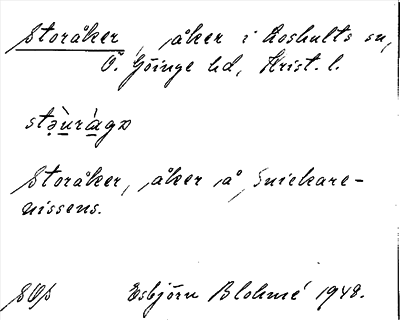 Storåker, åker i Loshults sn,
Ö. Göinge hd, Krist. l.
stə̀urágɒ
Storåker, åker å Snickare-
nissens.
SOp Esbjörn Blohmé 1948.